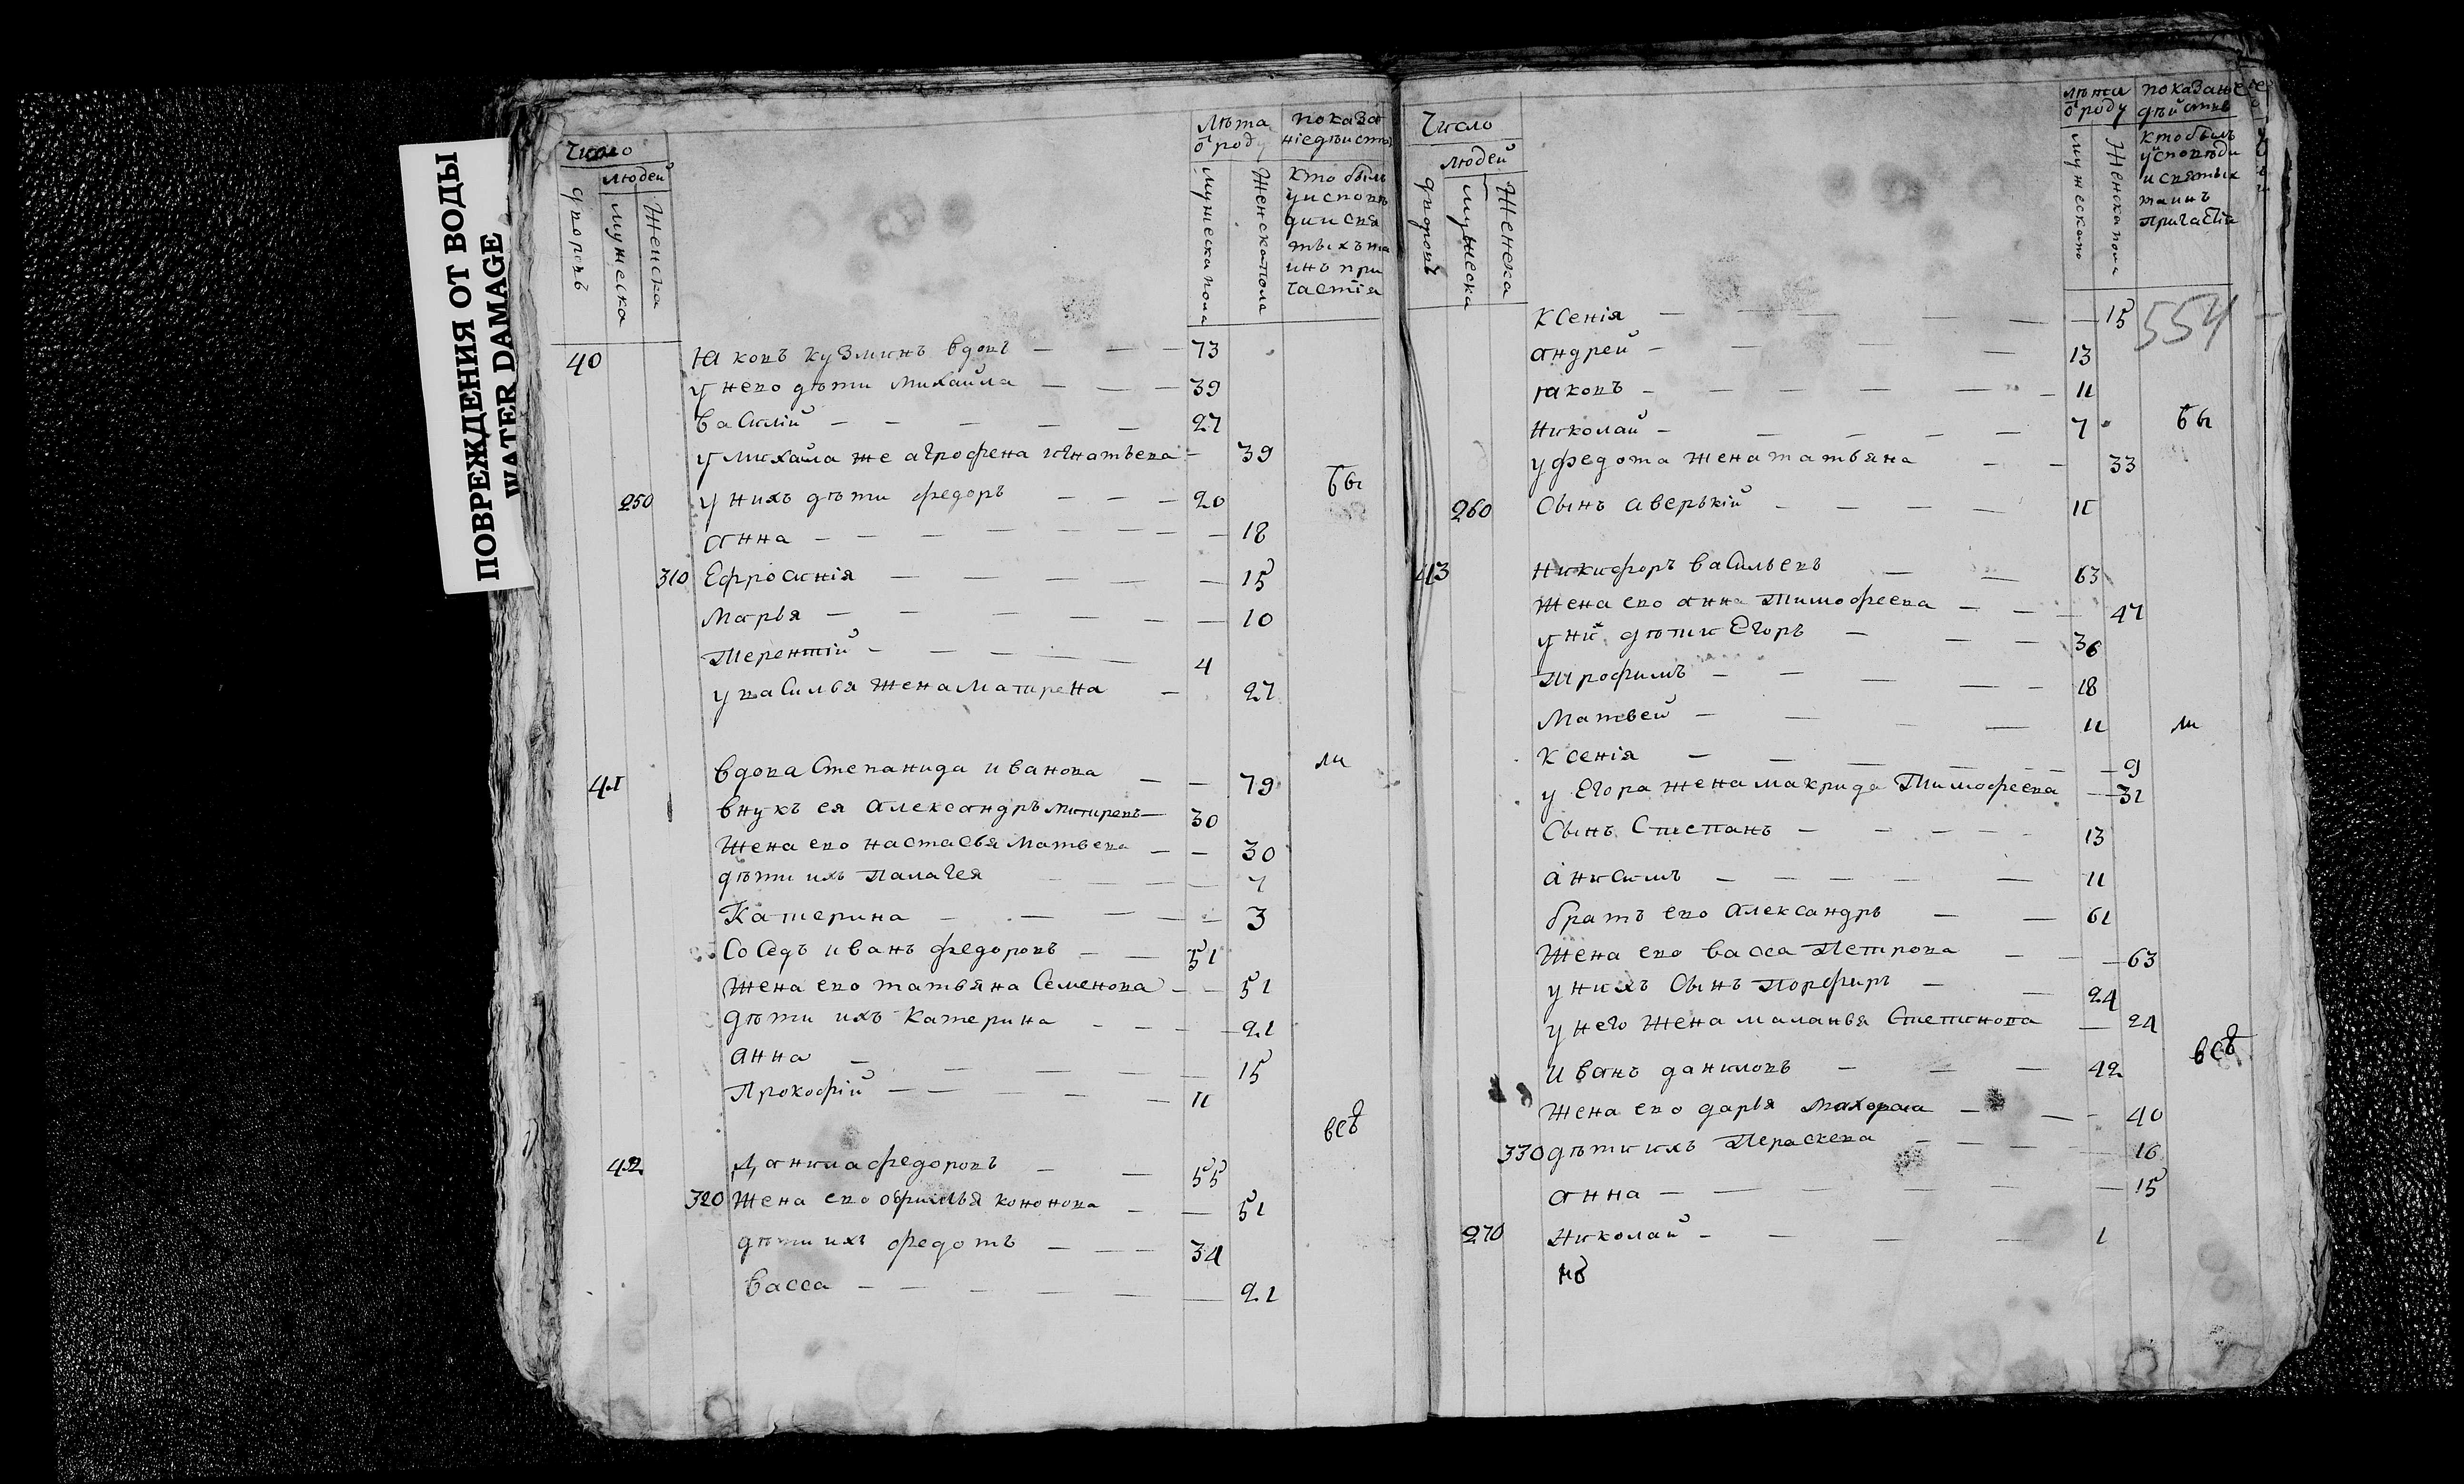 ПОВРЕЖДЕНИЯ ОТ ВОДЫ
WATER DAMAGE
Число
людей
дворовъ
мужеска
Женска
Лѣта
ѿ роду
мужеска пола
Женска пола
показа
ніе дѣиства
кто былъ
у исповѣ
ди и свя
тыхъ та
инъ при
частія
40 Яковъ Кузминъ вдовъ — — — 73
у него дѣти Михайла — — — 39
Василій — — — — — 27
у михаила же агрофена игнатьева — 39
бы
250 у нихъ дѣти федоръ — — — 20
анна — — — — — — — 18
310 Ефросинія — — — — — 15
Марья — — — — — — 10
Терентій — — — — — — 4
у василья жена Матрена — 27
ли
41 вдова Степанида иванова — — 79
внукъ ея александръ — 30
Жена его настасья Матвева — — 30
дѣти ихъ Палагея — — — — 7
Катерина — — — — — 3
Соседъ иванъ федоровъ — — 51
Жена его татьяна Семенова — — 51
Дѣти ихъ Катерина — — — — 21
анна — — — — — 15
Прокофій — — — — — 11
всѣ
42 Данила федоровъ — — 55
320 Жена его офимья кононова — — 51
дѣти ихъ федотъ — — — 34
Васса — — — — — — 21
Число
людей
дворовъ
мужеска
Женска
лѣта
ѿ роду
мужескаго
Женска пола
показанїе
дѣйств
кто былъ
у исповѣди
и святых
таинъ
Причастїя
554
Ксенія — — — — — — 15
андрей — — — — 13
яковъ — — — — — — 11
Николай — — — — — 7
бы
у федота жена татьяна — — 33
260 Сынъ аверькій — — — — 11
43 Никифоръ васильевъ — — 63
Жена его анна Тимофеева — — — 47
у ни дѣти Егоръ — — — 36
Трофимъ — — — — — 18
Матвей — — — — 11
ли
Ксенія — — — — — — 9
у Егора жена макрида Тимофеева — 31
Сынъ Степанъ — — — — — 13
анисимъ — — — — — 11
братъ его александръ — — 61
Жена его васса Петрова — — — 63
у нихъ Сынъ Порфиръ — — 24
у него Жена маланья — 24
всѣ
иванъ даниловъ — — — 42
Жена его дарья — — — 40
330 дѣти ихъ Пераскева — — — — 16
анна — — — — — — — 15
270 Николай — — — — 1